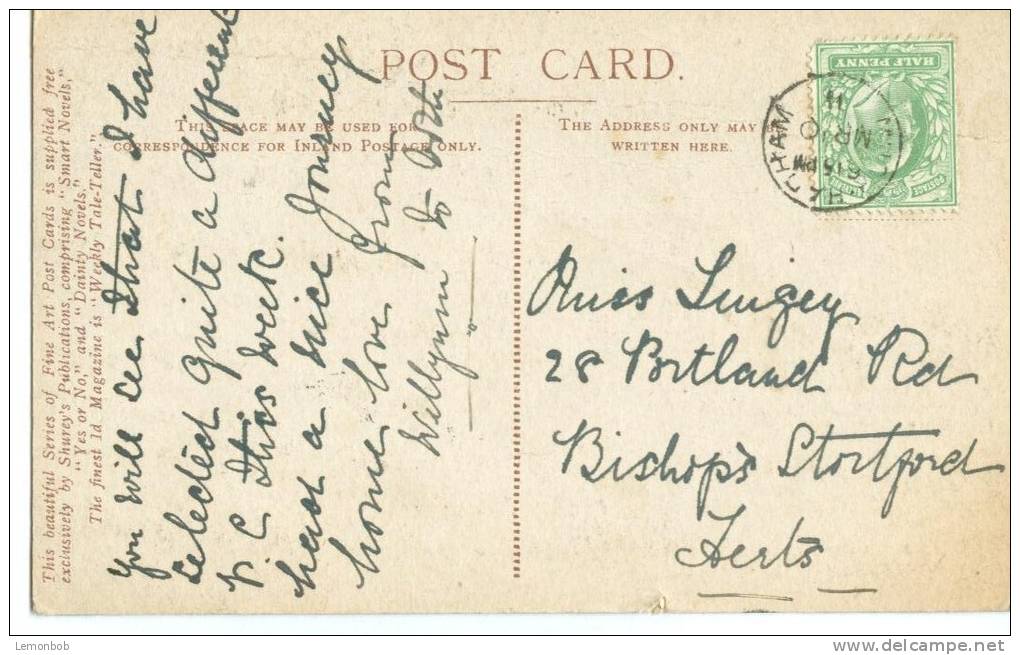 POST CARD.
THIS SPACE MAY BE USED FOR
CORRESPONDENCE FOR INLAND POSTAGE ONLY.
THE ADDRESS ONLY MAY BE
WRITTEN HERE.
This beautiful Series of Fine Art Post Cards is supplied free
exclusively by Shurey's Publications, comprising "Smart Novels,"
"Yes or No," and "Dainty Novels."
The finest 1d. Magazine is "Weekly Tale-Teller."
You will see that I have
selected quite a different
P.C this week.
had a nice Journey
home love from
Willynn to both
Miss Lingey
28 Portland Rd
Bishop's Stortford
Herts
HALF PENNY
POSTAGE
HAM
6.15 PM
MR
11
Lemonbob
www.delcampe.net